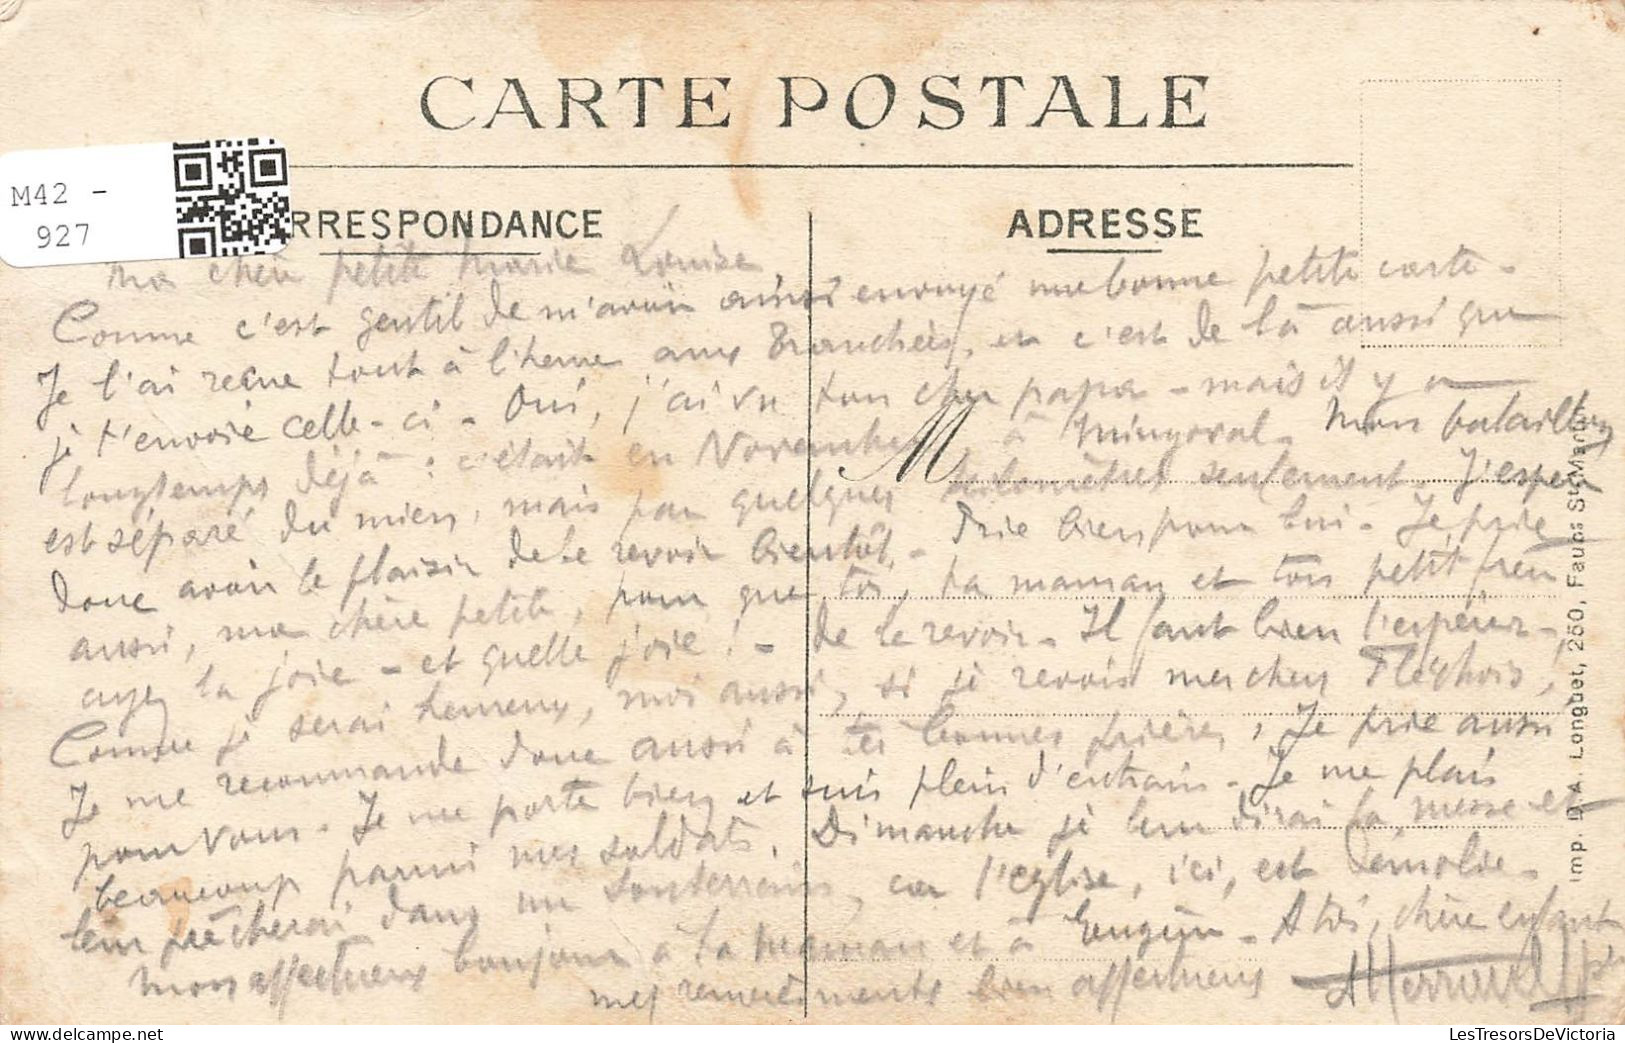 CARTE POSTALE
M42 -
927
RRESPONDANCE
ADRESSE
Ma chère petite Marie Louise,
Comme c'est gentil de m'avoir ainsi envoyé une bonne petite carte -
Je l'ai reçue tout à l'heure aux Tranchées, et c'est de là aussi que
je t'envoie celle-ci - Oui, j'ai vu ton cher papa - mais il y a
longtemps déjà : c'était en Novembre, à Mingoval. Mon bataillon
est séparé du sien, mais par quelques kilomètres seulement. J'espère
donc avoir le plaisir de le revoir bientôt. - Prie bien pour lui - Je prie
aussi, ma chère petite, pour que toi, ta maman et ton petit frère
ayez la joie - et quelle joie ! - de le revoir - Il faut bien l'espérer -
Comme je serai heureux, moi aussi, si je revois mes chers
Je me recommande donc aussi à tes bonnes prières, Je prie aussi
pour vous - Je me porte bien et suis plein d'entrain - Je me plais
beaucoup parmi mes soldats. Dimanche je leur dirai la messe et
leur prêcherai dans un souterrain, car l'église, ici, est démolie -
Mon affectueux bonjour à ta maman et à Eugène - A toi, chère enfant
mes remerciements bien affectueux
M
Imp. D. A. Longuet, 250, Faubg St-Martin
LesTresorsDeVictoria.com